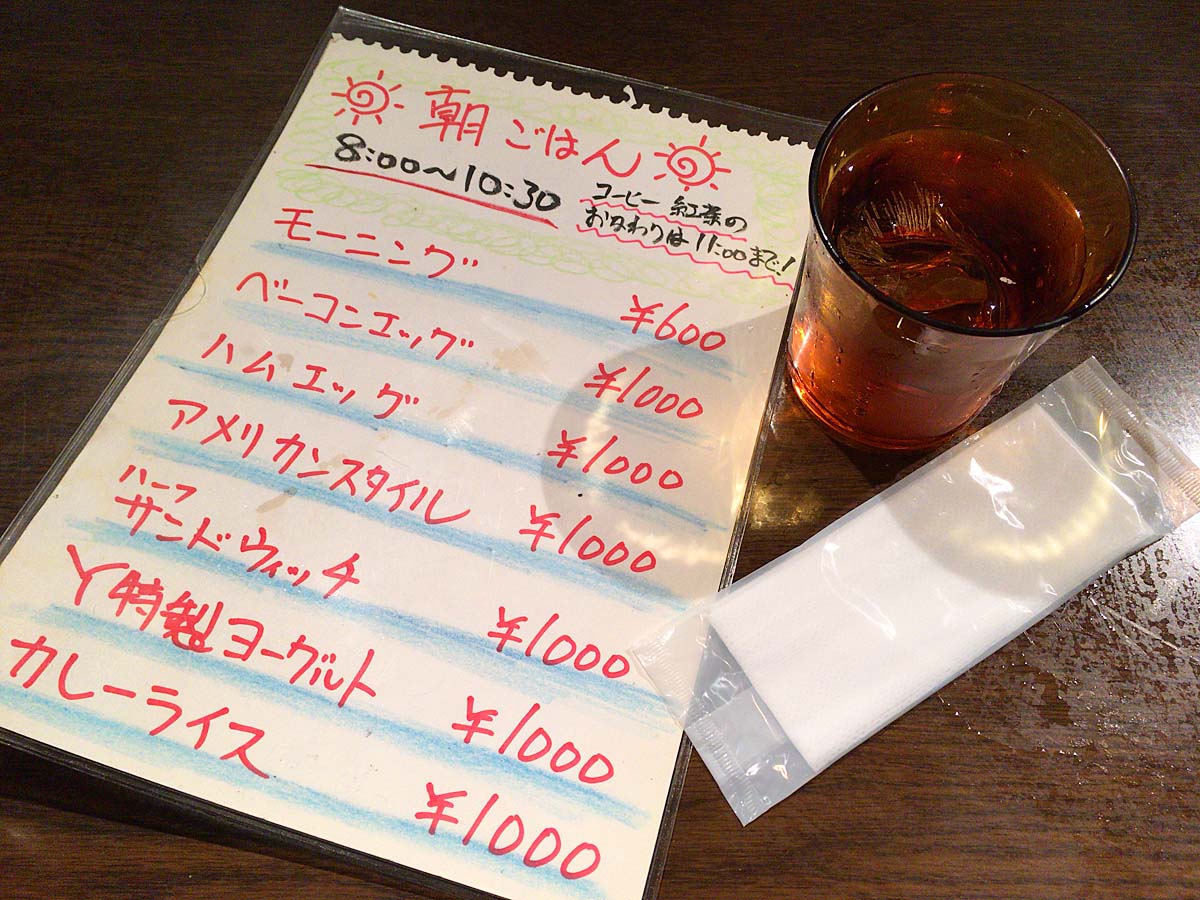 朝ごはん
8:00~10:30
コーヒー 紅茶の
おかわりは 11:00まで!
モーニング ¥600
ベーコンエッグ ¥1000
ハムエッグ ¥1000
アメリカンスタイル ¥1000
ハーフ
サンドウィッチ ¥1000
Y特製ヨーグルト ¥1000
カレーライス ¥1000